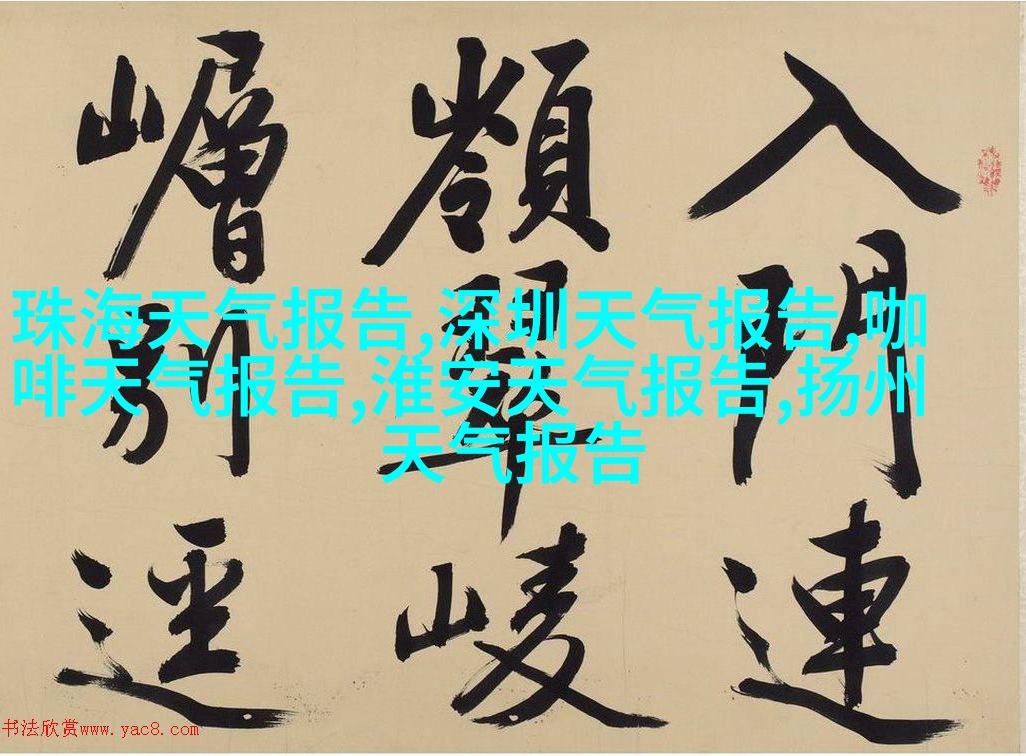 入門連
嶺翠崚
嶒別逕
珠海天气报告,深圳天气报告,咖
啡天气报告,淮安天气报告,扬州
天气报告
书法欣赏www.yac8.com